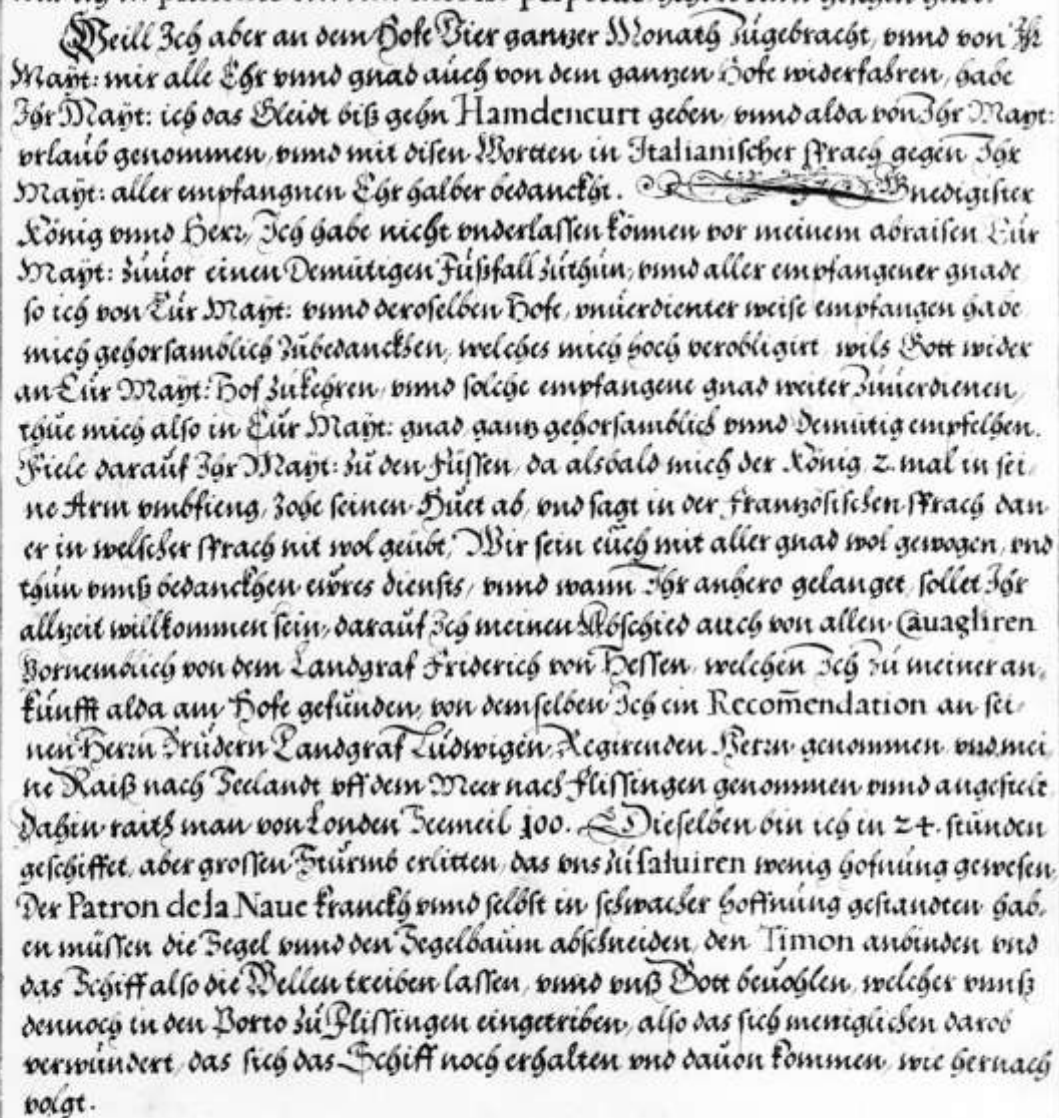 Weill Ich aber an dem Hofe Vier gantzer Monath zugebracht, vnnd von Ihr
Mayt: mir alle Ehr vnnd gnad auch von dem gantzen Hofe widerfahren, habe
Ihr Mayt: ich das Gleidt biß gehn Hamdencurt geben, vnnd alda von Ihr Mayt:
vrlaub genommen, vnnd mit disen Wortten in Italianischer sprach gegen Ihr
Mayt: aller empfangnen Ehr halber bedanckht. Gnedigister
König vnnd Herr, Ich habe nicht vnderlassen können vor meinem abraisen Eur
Mayt: zuuor einen Demütigen Füßfall zuthun, vnnd aller empfangener gnade
so ich von Eur Mayt: vnnd deroselben Hofe, vnuerdienter weise empfangen habe
mich gehorsamblich zubedanckhen, welches mich hoch verobligirt wils Gott wider
an Eur Mayt: Hof zukehren, vnnd solche empfangene gnad weiter zuuerdienen,
thue mich also in Eur Mayt: gnad gantz gehorsamblich vnnd Demütig empfelhen.
Fiele darauf Ihr Mayt: zu den füssen, da alsbald mich der König 2. mal in sei-
ne Arm vmbfieng, zohe seinen Huet ab, vnd sagt in der frantzösischen sprach dan
er in welscher sprach nit wol geübt, Wir sein euch mit aller gnad wol gewogen, vnd
thun vnnß bedanckhen ewres diensts, vnnd wann Ihr anhero gelanget, sollet Ihr
allzeit willkommen sein, darauf Ich meinen Abschied auch von allen Cauagliren
Vornemblich von dem Landgraf Friderich von Hessen, welchen Ich zu meiner an-
kunfft alda am Hofe gefunden, von demselben Ich ein Recom̄endation an sei-
nen Herrn Brudern Landgraf Ludwigen, Regirenden Herrn genommen, vnd mei
ne Raiß nach Seelandt vff dem Meer nach flissingen genommen vnnd angestelt
Dahin raith man von Londen Seemeil 100. Dieselben bin ich in 24. stunden
geschiffet, aber grossen Sturmb erlitten, das vns zu saluiren wenig hofnung gewesen,
Der Patron de la Naue kranckh vnnd selbst in schwacher hoffnung gestandten hab-
en müssen die Segel vnnd den Segelbaum abschneiden, den Timon anbinden vnd
das Schiff also die Wellen treiben lassen, vnnd vnß Gott beuohlen, welcher vnnß
dennoch in den Porto zu Flissingen eingetriben, also das sich meniglichen darob
verwundert, das sich das Schiff noch erhalten vnd dauon kommen, wie hernach
volgt.